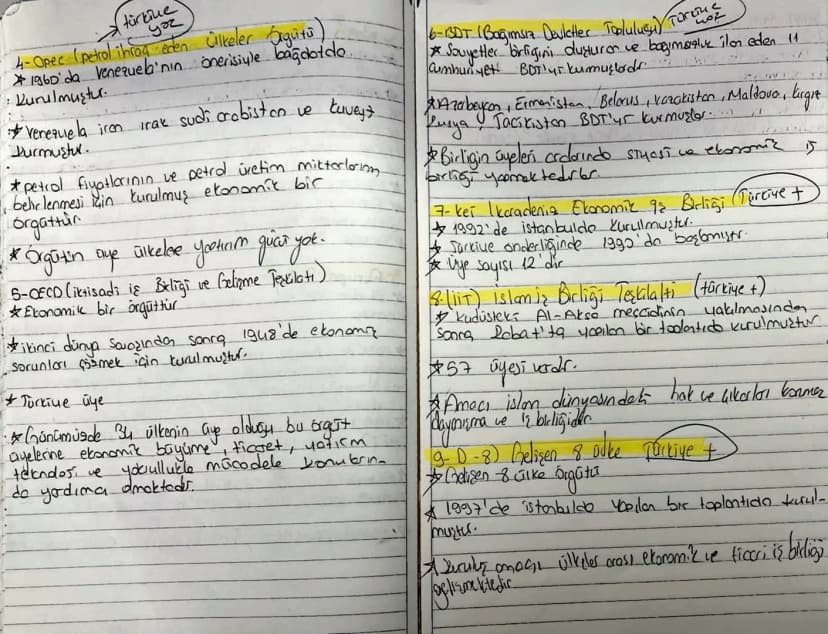 Türkiye
yok
4-Opec (petrol ihraç eden ülkeler Örgütü)
* 1960'da venezuela'nın önerisiyle bağdatda
kurulmuştur.
* Venezuela iran ırak sudi arabistan ve kuveyt
kurmuştur.
* petrol fiyatlarının ve petrol üretim miktarlarının
belirlenmesi için kurulmuş ekonomik bir
örgüttür.
* Örgütün üye ülkelere yaptırım gücü yok.
5-OECD (iktisadi iş Birliği ve Gelişme Teşkilatı)
* Ekonomik bir örgüttür
* ikinci dünya savaşından sonra 1948'de ekonomik
sorunları çözmek için kurulmuştur.
* Türkiye üye
* Günümüzde 34 ülkenin üye olduğu bu örgüt
üyelerine ekonomik büyüme, ticaret, yatırım
teknoloji ve yoksullukla mücadele konuların-
da yardımcı olmaktadır.
6-BDT (Bağımsız Devletler Topluluğu) Türkiye
yok
* Sovyetler birliğini oluşturan ve bağımsızlık ilan eden 11
cumhuriyet BDT'yi kurmuşlardır.
* Azarbeycan, Ermenistan, Belarus, kazakistan, Moldova, kırgız
Rusya, Tacikistan BDT'yi kurmuşlar.
* Birliğin üyeleri aralarında siyasi ve ekonomik iş
birliği yapmaktadırlar.
7-kei (karadeniz Ekonomik iş Birliği) Türkiye +
* 1992'de istanbulda kurulmuştur.
* Türkiye önderliğinde 1990'da başlamıştır.
* Üye sayısı 12'dir
8-(iiT) islam iş Birliği Teşkilatı (türkiye +)
* kudüsteki Al-Aksa mescidinin yakılmasından
sonra Rabat'ta yapılan bir toplantıda kurulmuştur
* 57 üyesi vardır.
* Amacı islam dünyasındaki hak ve çıkarları korumak
dayanışma ve iş birliğidir.
9-D-8) Gelişen 8 ülke Türkiye +
* Gelişen 8 ülke örgütü
* 1997'de istanbulda yapılan bir toplantıda kurul-
muştur.
* kuruluş amacı ülkeler arası ekonomik ve ticari iş birliği
geliştirmektedir